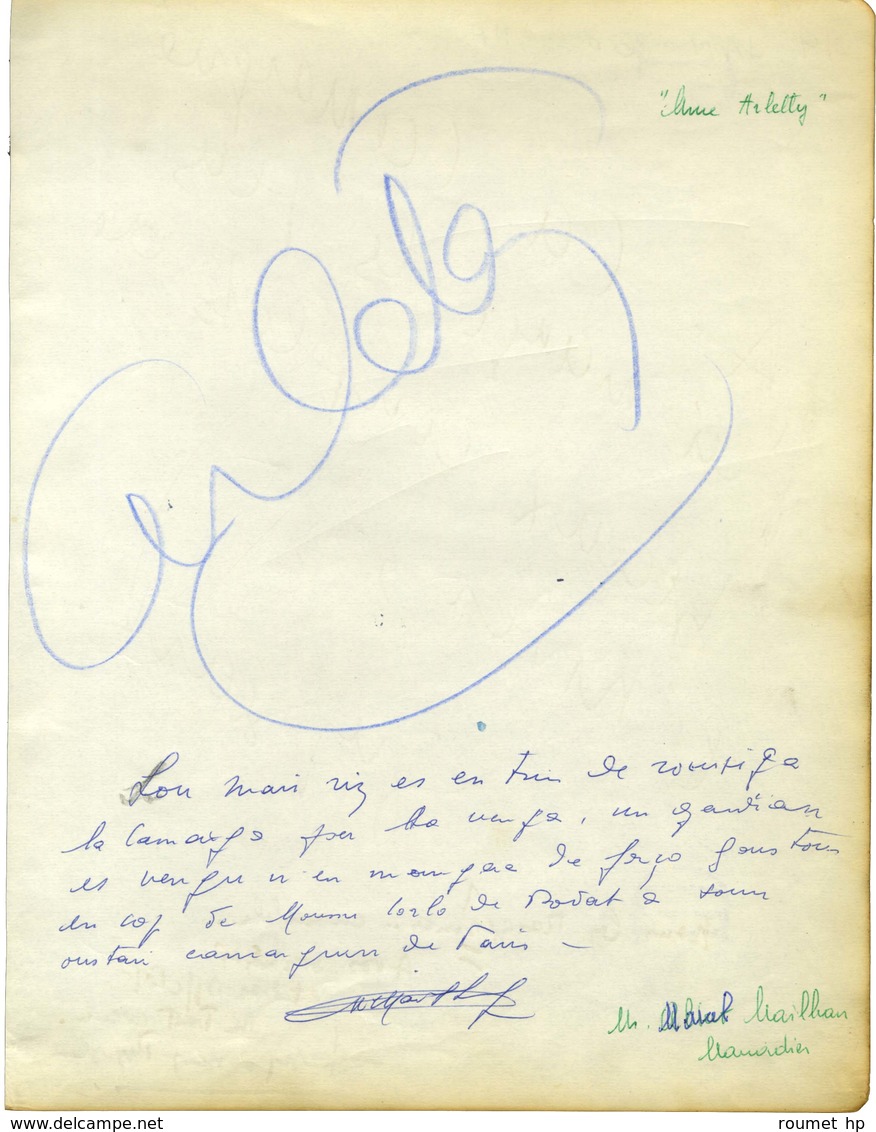 "Mme Arletty"
Arletty
Lou mau riz es en trin de rousiga
la Camargo per la venja, un gardian
es vengu n'en manga de forço gous tous
en co de Moussu Carlo de Rodat a soun
oustau camarguen de Paris –
M. Marcel Mailhan
Manadier
www.delcampe.net
roumet hp